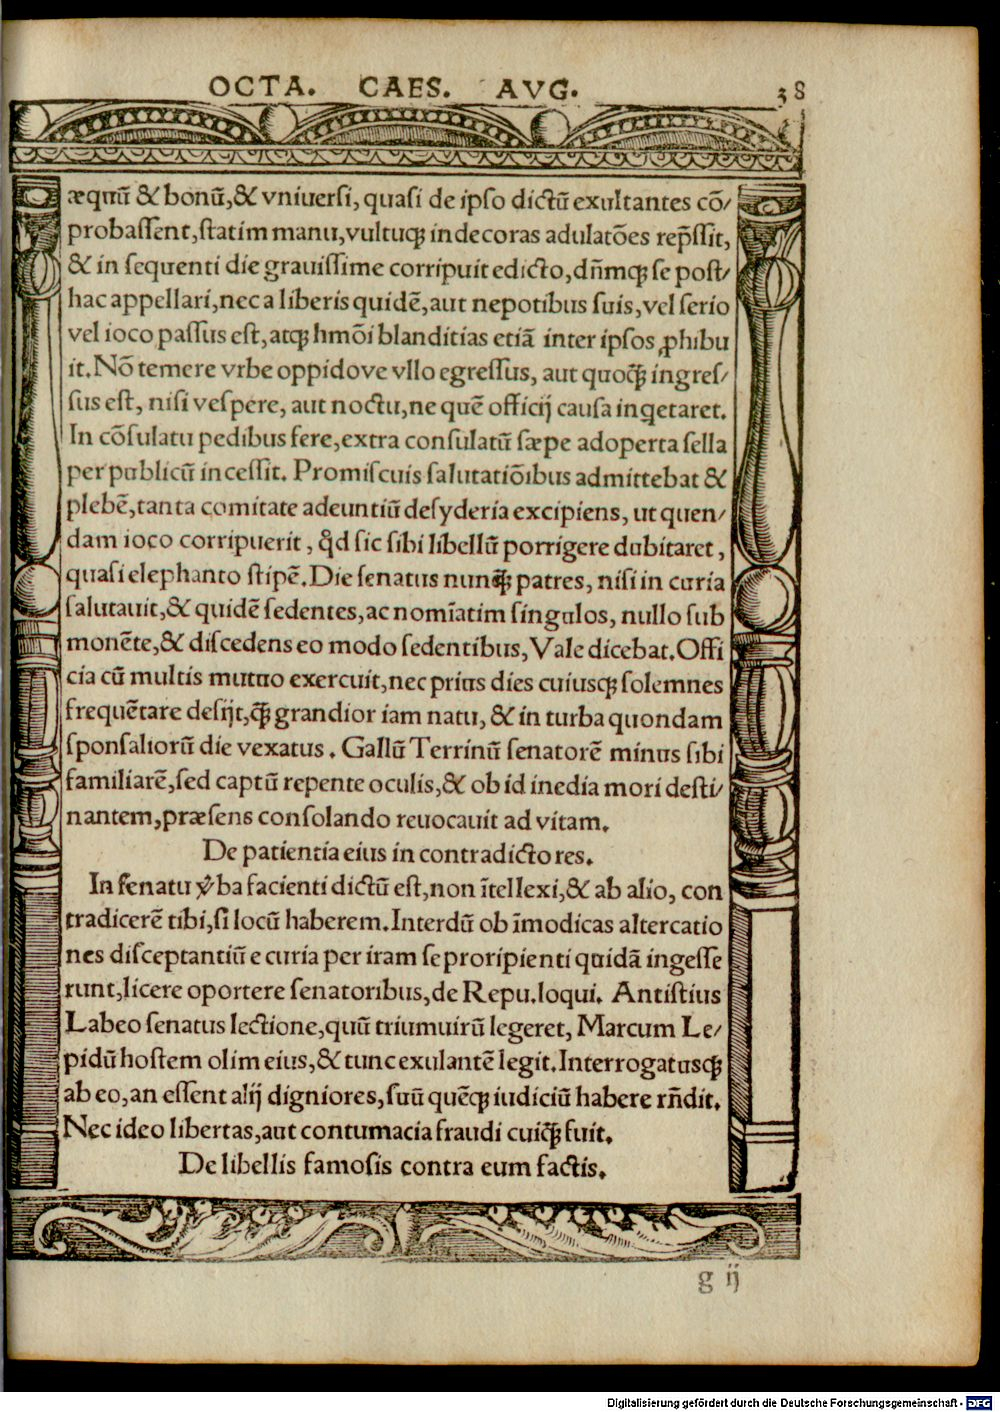 OCTA. CAES. AVG. 38
æquũ & bonũ,& vniuersi, quasi de ipso dictũ exultantes cõ/
probassent, statim manu, vultuq; indecoras adulatões rep̃ssit,
& in sequenti die grauissime corripuit edicto, dñmq; se post/
hac appellari, nec a liberis quidẽ, aut nepotibus suis, vel serio
vel ioco passus est, atq; hmõi blanditias etiã inter ipsos ꝓhibu
it. Nõ temere vrbe oppidove vllo egressus, aut quoq̃; ingres/
sus est, nisi vespere, aut noctu, ne quẽ officij causa inq̇etaret.
In cõsulatu pedibus fere, extra consulatũ sæpe adoperta sella
per publicũ incessit. Promiscuis salutatiõibus admittebat &
plebẽ, tanta comitate adeuntiũ desyderia excipiens, ut quen/
dam ioco corripuerit, q̊d sic sibi libellũ porrigere dubitaret,
quasi elephanto stipẽ. Die senatus nunq̃; patres, nisi in curia
salutauit,& quidẽ sedentes, ac nomĩatim singulos, nullo sub
monẽte,& discedens eo modo sedentibus, Vale dicebat. Offi
cia cũ multis mutuo exercuit, nec prius dies cuiusq; solemnes
frequẽtare desijt, q̃; grandior iam natu, & in turba quondam
sponsaliorũ die vexatus. Gallũ Terrinũ senatorẽ minus sibi
familiarẽ, sed captũ repente oculis,& ob id inedia mori desti/
nantem, præsens consolando reuocauit ad vitam.
De patientia eius in contradictores.
In senatu v̓ba facienti dictũ est, non ĩtellexi,& ab alio, con
tradicerẽ tibi, si locũ haberem. Interdũ ob ĩmodicas altercatio
nes disceptantiũ e curia per iram se proripienti quidã ingesse
runt, licere oportere senatoribus, de Repu. loqui. Antistius
Labeo senatus lectione, quũ triumuirũ legeret, Marcum Le/
pidũ hostem olim eius,& tunc exulantẽ legit. Interrogatusq;
ab eo, an essent alij digniores, suũ quẽq; iudiciũ habere rñdit.
Nec ideo libertas, aut contumacia fraudi cuiq̃; fuit.
De libellis famosis contra eum factis.
g ij
Digitalisierung gefördert durch die Deutsche Forschungsgemeinschaft - DFG